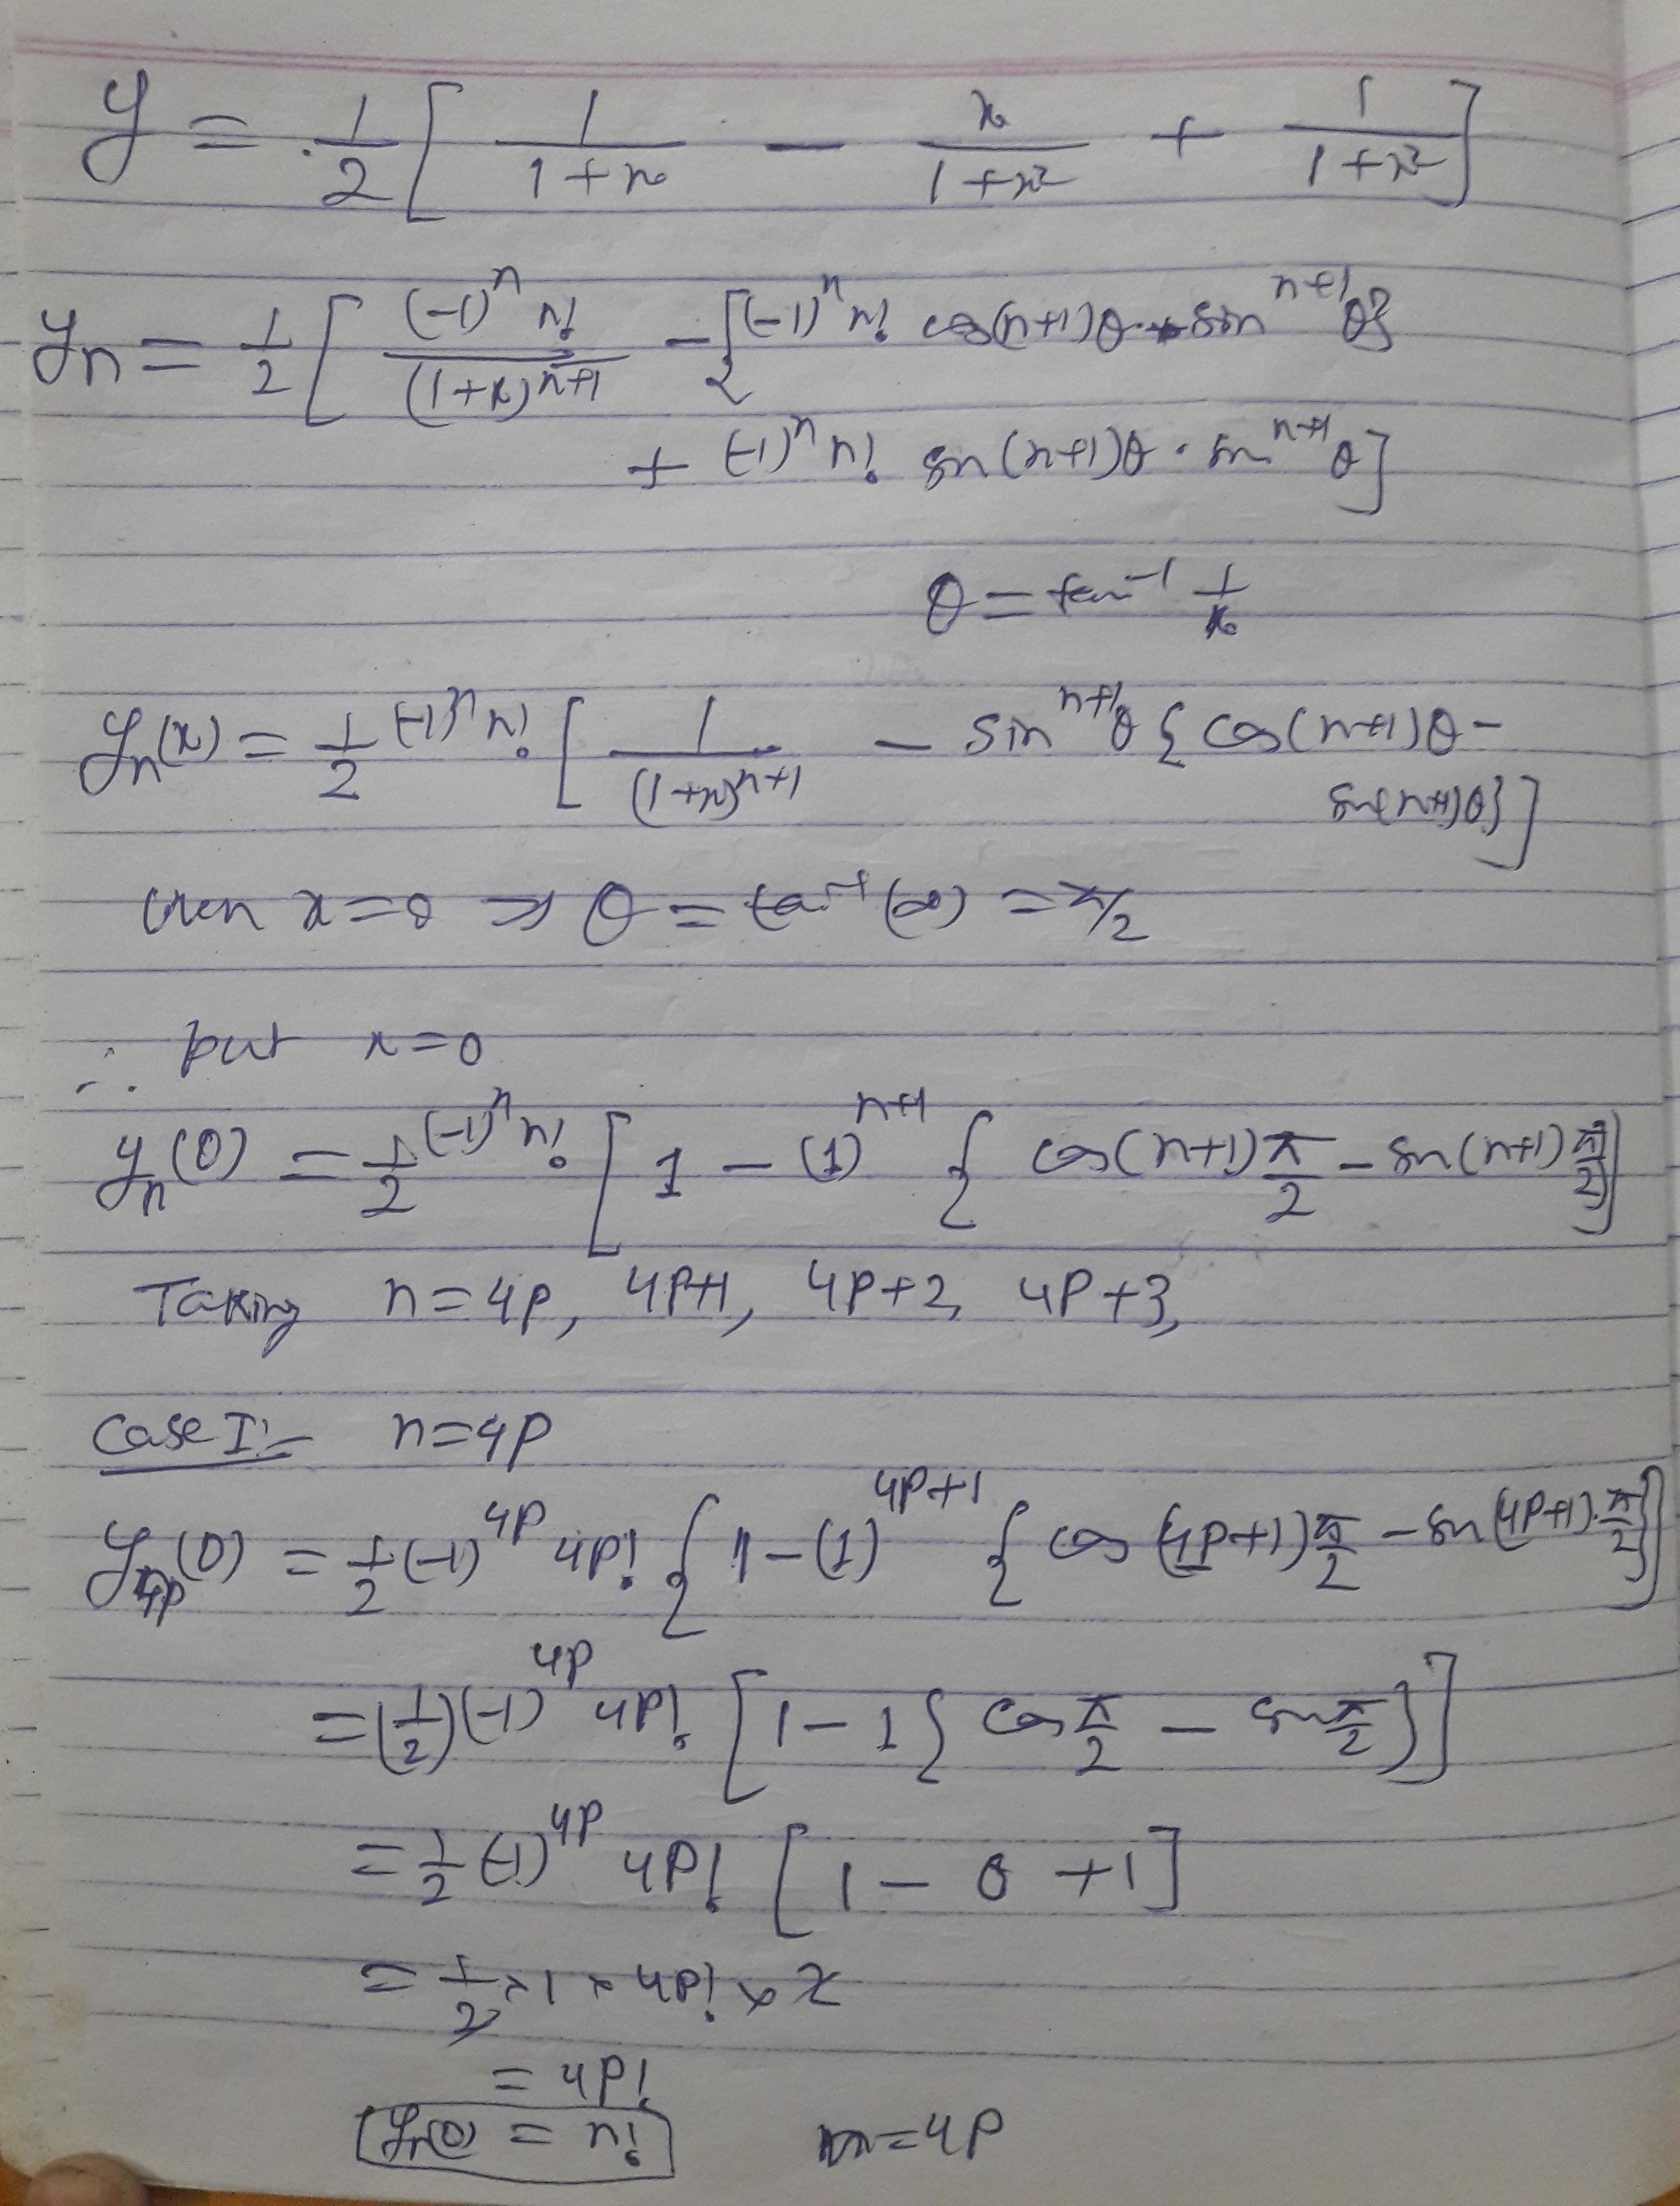 y = 1/2 [ 1/(1+x) - x/(1+x²) + 1/(1+x²) ]
yn = 1/2 [ (-1)^n n!/(1+x)^(n+1) - {(-1)^n n! cos(n+1)θ · sin^(n+1) θ}
+ (-1)^n n! sin(n+1)θ · sin^(n+1) θ ]
θ = tan^-1 1/x
yn(x) = 1/2 (-1)^n n! [ 1/(1+x)^(n+1) - sin^(n+1) θ { cos(n+1)θ -
sin(n+1)θ} ]
when x=0 ⇒ θ = tan^-1 (∞) = π/2
∴ put x=0
yn(0) = 1/2 (-1)^n n! [ 1 - (1)^(n+1) { cos(n+1) π/2 - sin(n+1) π/2 } ]
Taking n=4P, 4P+1, 4P+2, 4P+3,
Case I:- n=4P
y4p(0) = 1/2 (-1)^4P 4P! { 1-(1)^(4P+1) { cos (4P+1) π/2 - sin (4P+1)·π/2 } ]
= (1/2) (-1)^4P 4P! [ 1 - 1 { cos π/2 - sin π/2 } ]
= 1/2 (-1)^4P 4P! [ 1 - 0 + 1 ]
= 1/2 × 1 × 4P! × 2
= 4P!
yn(0) = n! n=4P